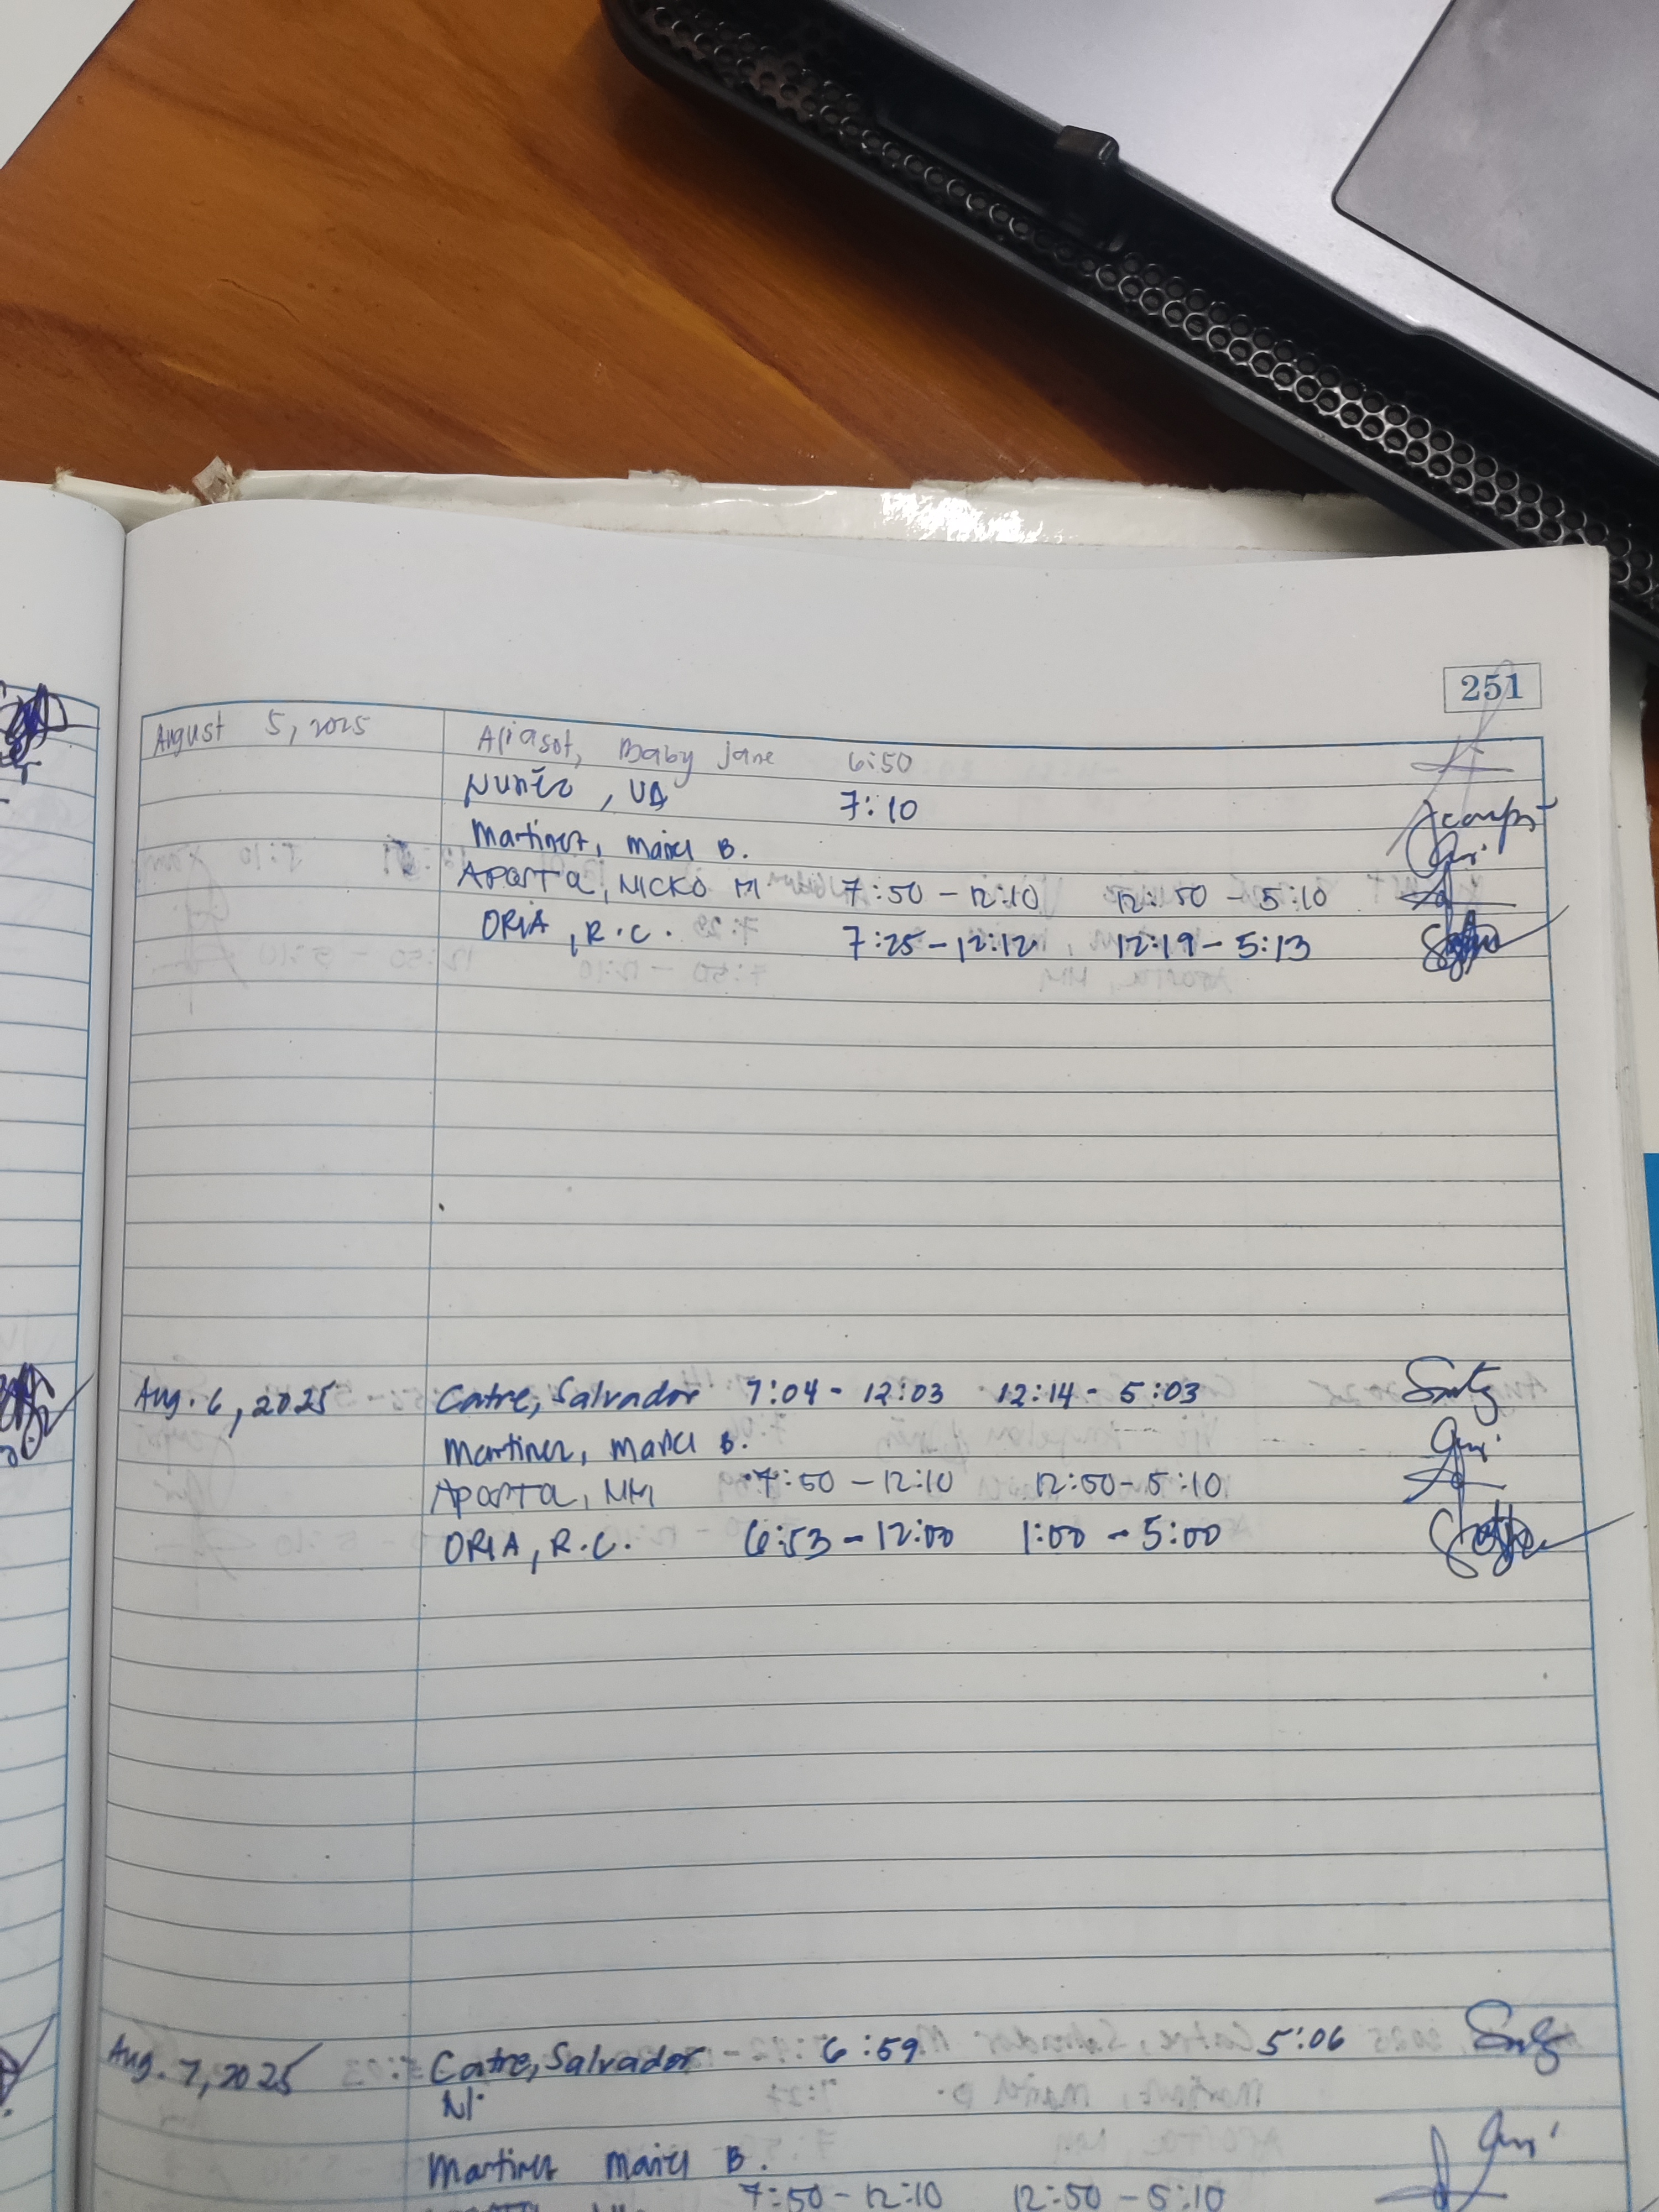 251
August 5, 2025 Aliasot, Baby Jane 6:50
Nuñez, VA 7:10
Martinez, Maricl B.
APOSTA, NICKO M 7:50 - 12:10 12:50 - 5:10
ORIA, R.C. 7:25 - 12:12 12:19 - 5:13
Aug. 6, 2025 Catre, Salvador 7:04 - 12:03 12:14 - 5:03
Martinez, Maricl B.
APOSTA, NM 7:50 - 12:10 12:50 - 5:10
ORIA, R.C. 6:53 - 12:00 1:00 - 5:00
Aug. 7, 2025 Catre, Salvador 6:59 5:06
N.
Martinez Maricl B.
7:50 - 12:10 12:50 - 5:10